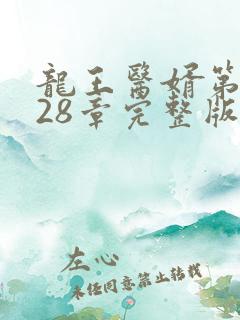 龍王醫婿第
28章完整版
左心
未经同意禁止转载